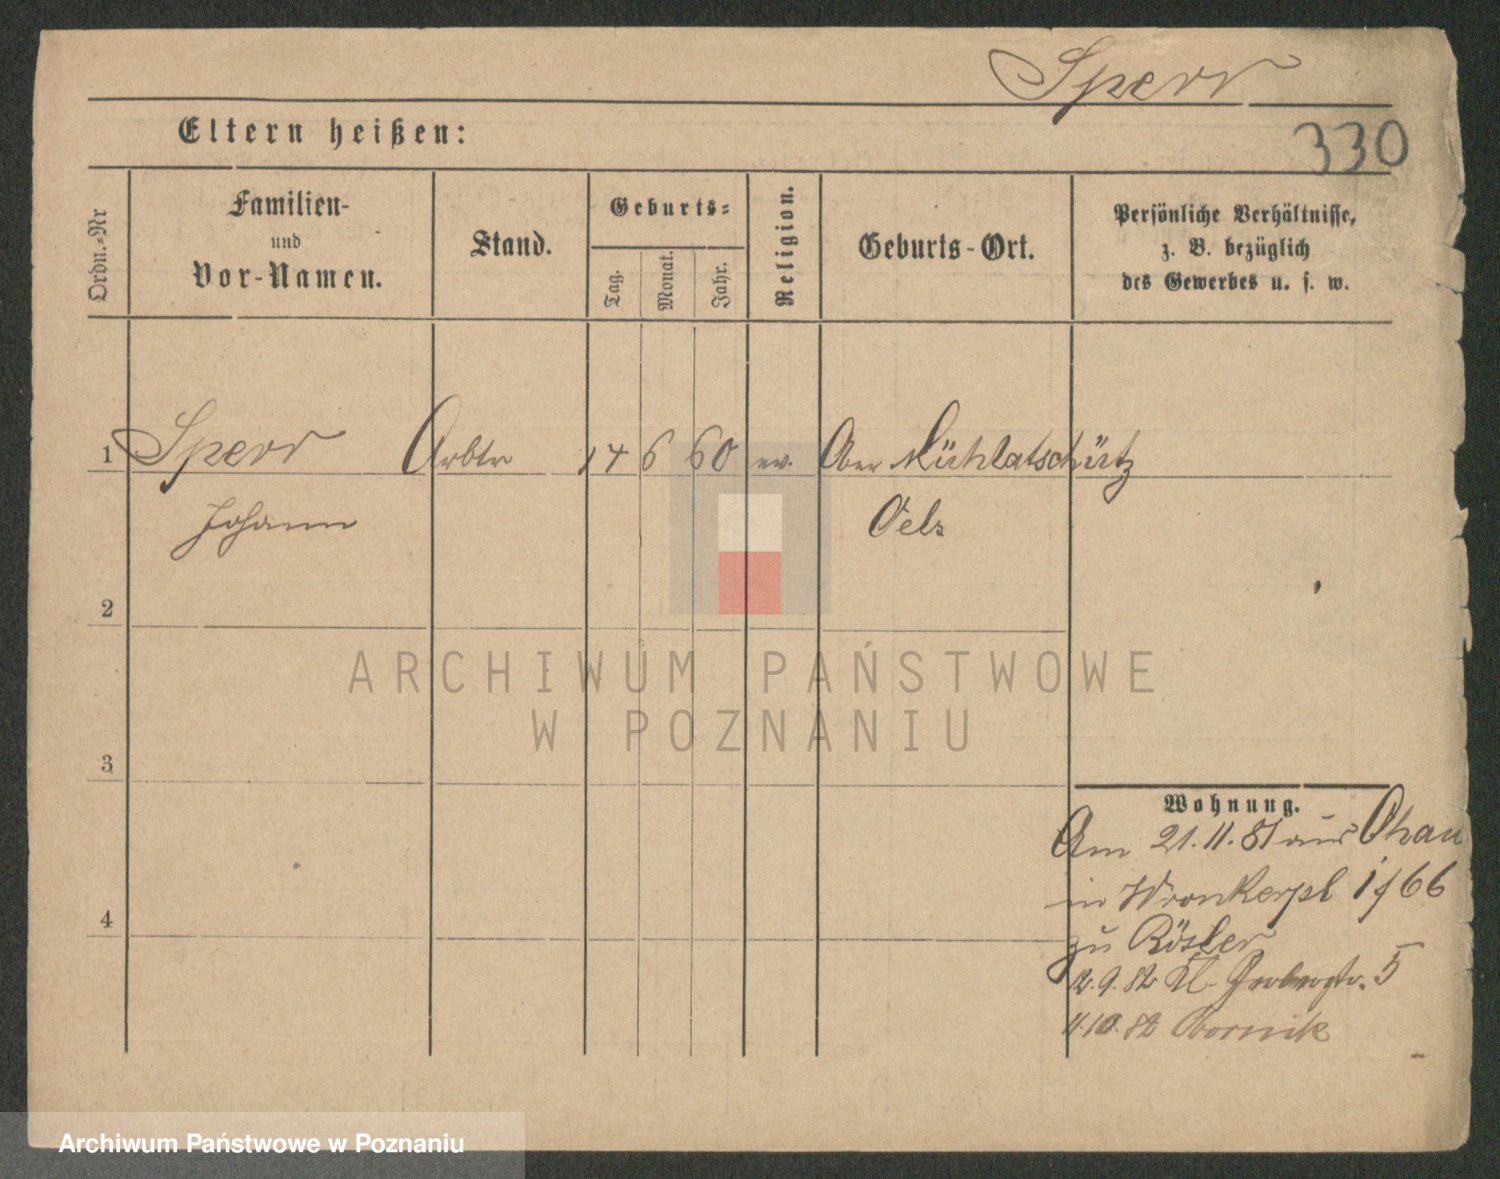 Sperr
330
Eltern heißen:
Ordn.=Nr
Familien-
und
Vor-Namen.
Stand.
Geburts=
Tag.
Monat.
Jahr.
Religion.
Geburts-Ort.
Persönliche Verhältnisse,
z. B. bezüglich
des Gewerbes u. s. w.
1 Sperr Arbtr 14 6 60 ev. Ober Mühlatschütz
Johann Oels
2
3
4
Wohnung.
Am 21.11.81 aus
in Wronkerpl 1/66
zu Rösler
12.9.82 Kl. Gerberstr. 5
11.10.82 Obornik
ARCHIWUM PAŃSTWOWE
W POZNANIU
Archiwum Państwowe w Poznaniu